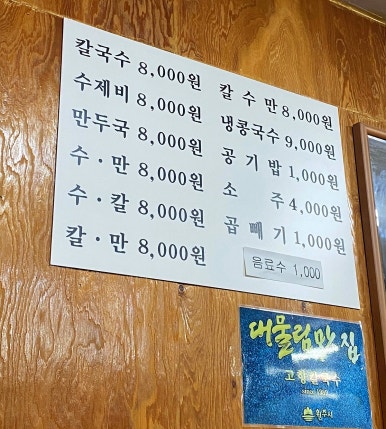 칼국수 8,000원
수제비 8,000원
만두국 8,000원
수·만 8,000원
수·칼 8,000원
칼·만 8,000원
칼수만 8,000원
냉콩국수 9,000원
공기밥 1,000원
소주 4,000원
곱빼기 1,000원
음료수 1,000
대물림맛집
고향칼국수
원주시